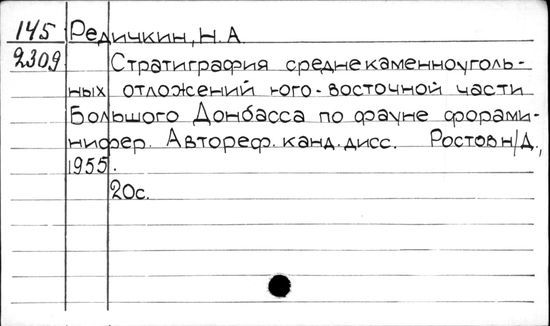 145 Редичкин, Н.А.
2309 Стратиграфия среднекаменноуголь-
ных отложений юго-восточной части
Большого Донбасса по фауне форами-
нифер. Автореф. канд. дисс. Ростов н/Д.,
1955.
20с.